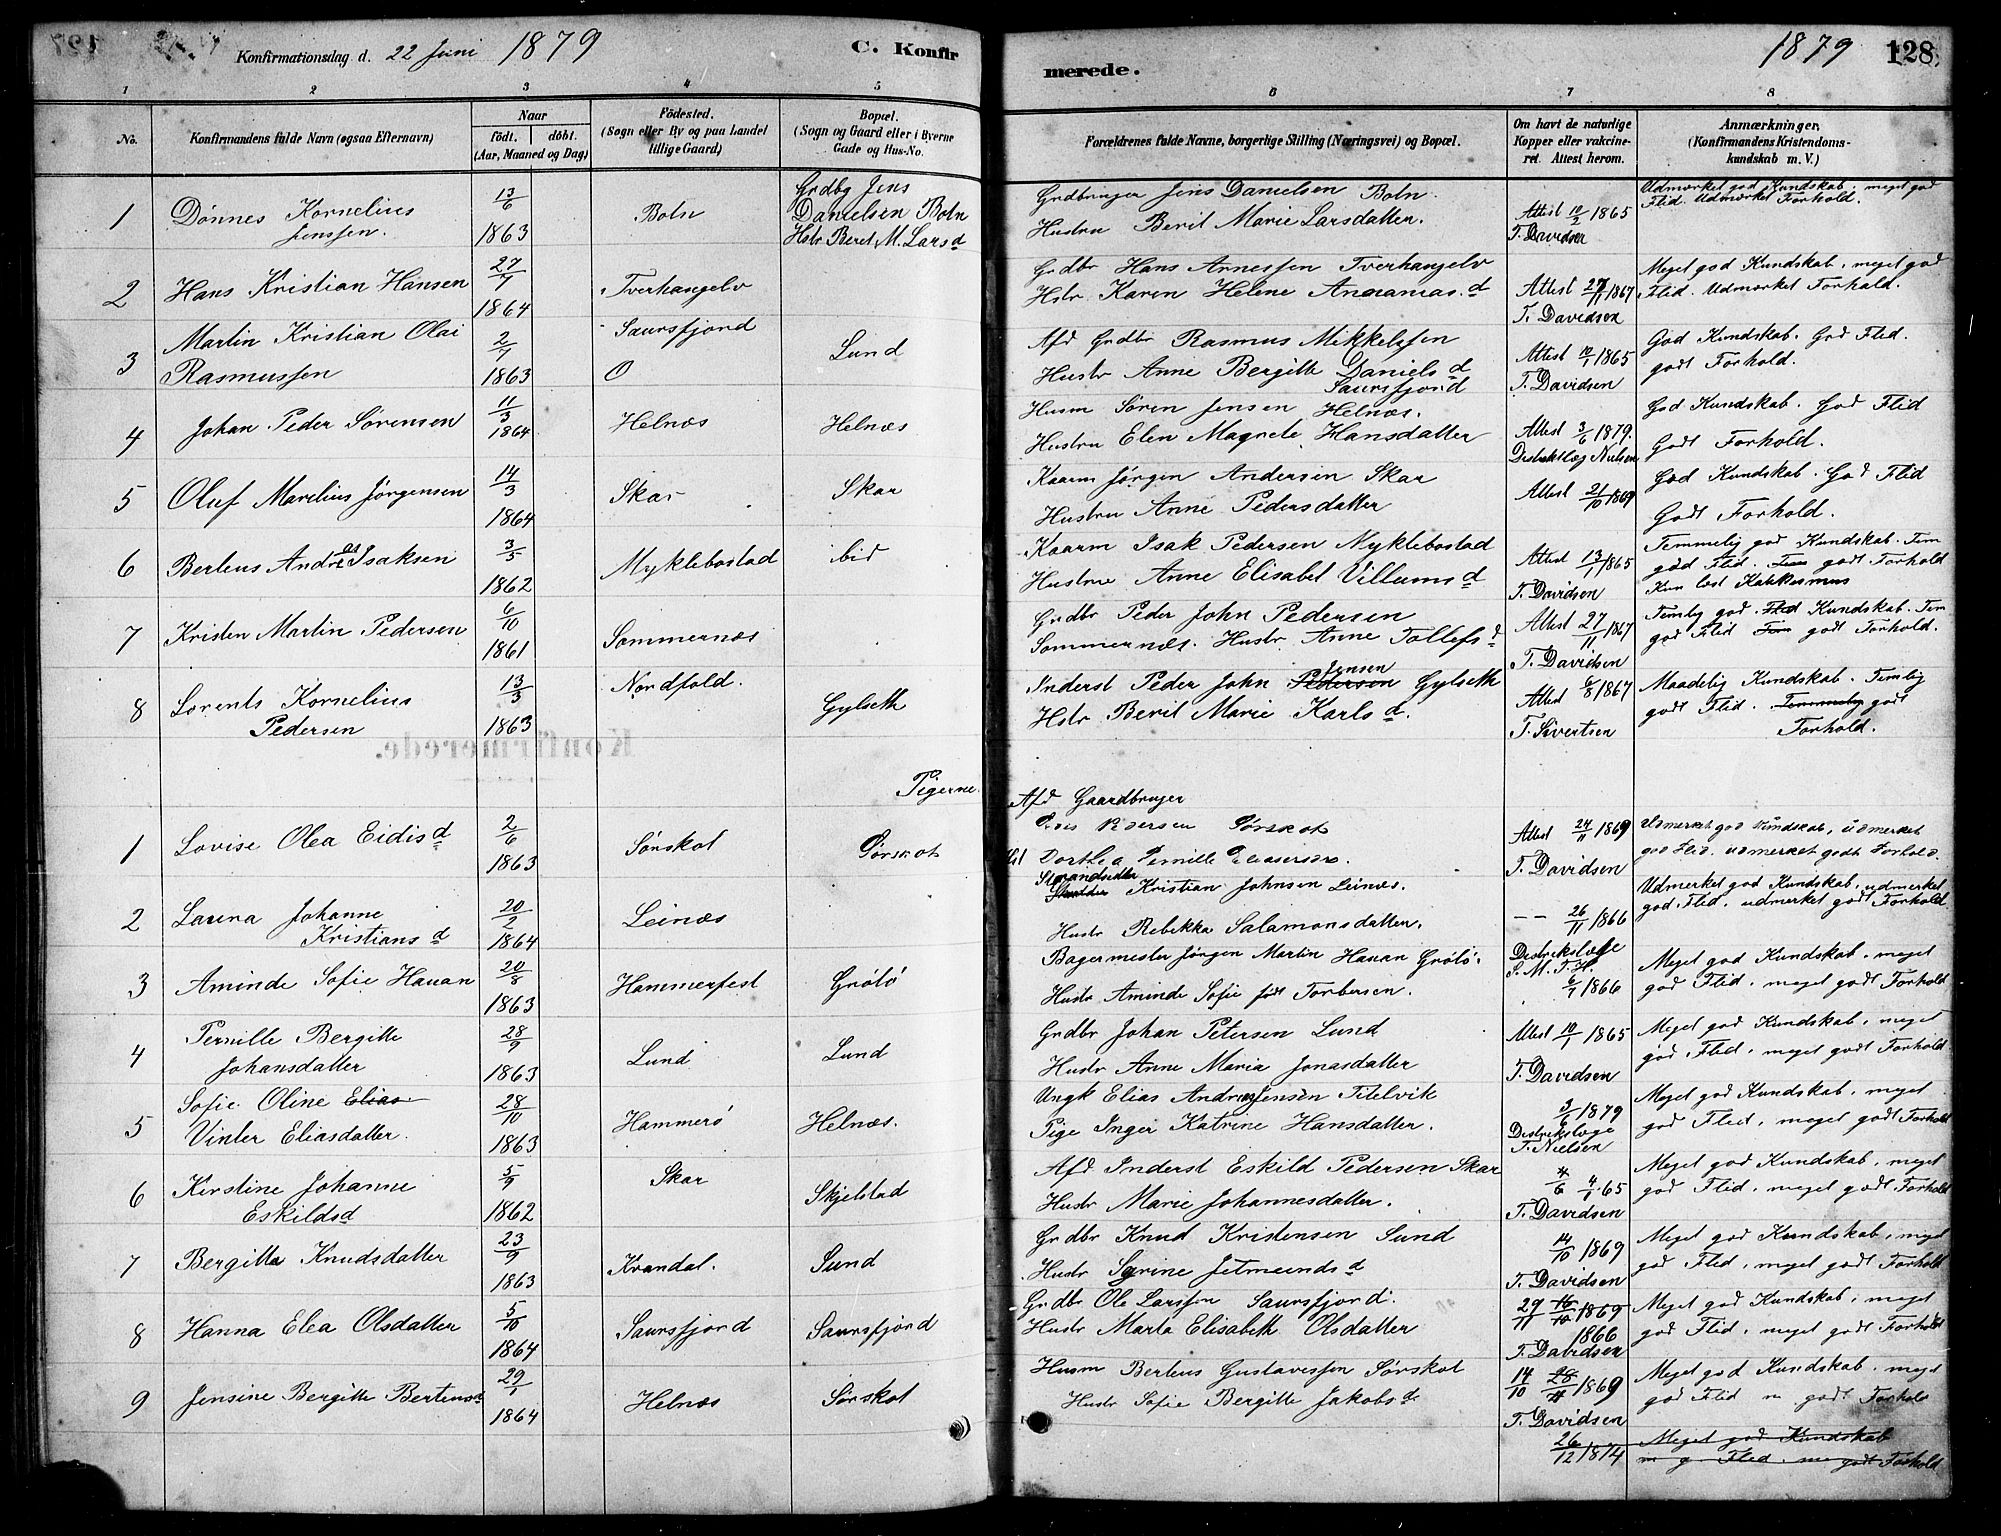 Konfirmationsdag d. 22 Juni 1879
C. Konfirmerede.
1879
128
1 2 3 4 5 6 7 8
No.
Konfirmandens fulde Navn (ogsaa Efternavn)
Naar
født. døbt.
(Aar, Maaned og Dag)
Fødested.
(Sogn eller By og paa Landet
tillige Gaard)
Bopæl.
(Sogn og Gaard eller i Byerne
Gade og Hus-No.
Forældrenes fulde Navne, borgerlige Stilling (Næringsvei) og Bopæl.
Om havt de naturlige
Kopper eller vakcine-
ret. Attest herom.
Anmærkninger,
(Konfirmandens Kristendoms-
kundskab m. V.)
1 Dønnes Kornelius Jenssen. 13/6 1863 Boln
Grdbg Jens Danielsen Boln Hstr Beret M. Larsd
Grdbruger Jens Danielsen Boln. Hustru Berit Marie Larsdatter.
Attest 10/2 1865 T. Davidsen
Udmærket god Kundskab. meget god Flid. Udmærket Forhold.
2 Hans Kristian Hansen 27/7 1864 Tverhangelv
Grdbr Hans Arnessen Tverhangelv Hstr. Karen Helene Ananias.d
Attest 27/11 1867 T. Davidsen
Meget god Kundskab, meget god Flid. Udmærket Forhold.
3 Martin Kristian Olai Rasmussen 2/7 1863 Saursfjord O Lund
Afd Grdbr Rasmus Mikkelssen Hustr Anne Bergitte Daniels d Saursfjord
Attest 10/1 1865 T. Davidsen
God Kundskab. God Flid. godt Forhold.
4 Johan Peder Sørensen 11/3 1864 Helnæs Helnæs
Husm Søren Jensen Helnæs. Hustru Elen Magrete Hansdatter
Attest 3/6 1879. Destriktslæg Nielsen
God Kundskab. God Flid Godt Forhold.
5 Oluf Marelius Jørgensen 14/3 1864 Skar Skar
Kaarm Jørgen Andersen Skar Hustru Anne Pedersdatter
Attest 21/10 1869
God Kundskab. God Flid Godt Forhold.
6 Berteus Andreas Isaksen 3/5 1862 Myklebostad ibid
Kaarm Isak Pedersen Myklebostad Hustru Anne Elisabet Villums d
Attest 13/1 1865 T. Davidsen
Temmelig god Kundskab. Tem god Flid. Tem godt Forhold Kun læst Katekesmus
7 Kristen Martin Pedersen 6/10 1861 Sommernæs
Grdbr Peder John Pedersen Sommernæs. Hustr Anne Tollefs d
Attest 27/11 1867 T. Davidsen
Temlig god Flid Kundskab. Tem god Flid Tem godt Forhold.
8 Lorents Kornelius Pedersen 13/3 1863 Nordfold. Gylseth
Inderst Peder John Pedersen Jensen Gylseth Hstr. Berit Marie Karls d.
Attest 6/8 1867 T. Sivertsen
Maadelig Kundskab. Temlig godt Flid. Temmelig godt Forhold.
Pigerne.
1 Lovise Olea Eidis d 2/6 1863 Sørskot Sørskot
Afd Gaardbruger Pedersen Sørskot Hst Dorthea Pernille
Attest 24/11 1869 T. Davidsen
Udmerket god Kundskab, udmerket god Flid. udmerket godt Forhold.
2 Laura Johanne Kristians d 20/2 1864 Leinæs
Strandsidder Kristian Johnsen Leinæs. Hustr Rebekka Salamonsdatter.
— — 26/11 1866
Udmerket god Kundskab, udmerket god Flid, udmerket godt Forhold.
3 Aminde Sofie Hauan 20/8 1863 Hammerfest Grøtø
Bagermester Jørgen Martin Hauan Grøtø. Hustr Aminde Sofie født Torbersen.
Destrikslæge S. M. T. H. 6/1 1866
Meget god Kundskab, meget god Flid, meget godt Forhold
4 Pernille Bergitte Johansdatter 28/9 1863 Lund Lund
Grdbr Johan Petersen Lund Hustr Anne Maria Jonasdatter
Attest 10/1 1865 T. Davidsen
Meget god Kundskab, meget god Flid, meget godt Forhold
5 Sofie Oline Elias Vinter Eliasdatter. 28/10 1863 Hammerø Helnæs.
Ungk Elias Andreas Jensen Titelvik Pige Inger Katrine Hansdatter.
3/6 1879 Destrikslæge T. Nielsen
Meget god Kundskab, meget god Flid, meget godt Forhold
6 Kirstine Johanne Eskildsd 5/9 1862 Skar Skjelstad
Afd. Inderst Eskild Pedersen Skar Hustr Marie Johannesdatter.
4/6 4/1 65 T. Davidsen
Meget god Kundskab, meget god Flid, meget godt Forhold
7 Bergitta Knudsdatter 23/9 1863 Kvandal. Sund
Grdbr Knud Kristensen Sund Hustr Syrine Jetmunds d
14/10 1869 T. Davidsen
Meget god Kundskab, meget god Flid, meget godt Forhold
8 Hanna Elea Olsdatter 5/10 1864 Saursfjord Saursfjord
Grdbr Ole Larssen Saursfjord. Hustr Marta Elisabeth Olsdatter
29/11 16/10 1869 1866 T. Davidsen
Meget god Kundskab, meget god Flid, meget godt Forhold
9 Jensine Bergitte Berteusd 29/1 1864 Helnæs Sørskot
Husm Berteus Gustavessen Sørskot Hustr Sofie Bergitte Jakobs d.
14/10 28/11 1869 T. Davidsen
Meget god Kundskab, meget god Flid m godt Forhold
26/12 1874
Meget god Kundskab m g. Flid. me godt Forhold